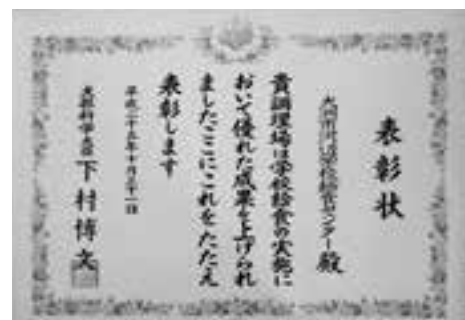 表彰状
学校給食センター殿
貴調理場は学校給食の実施に
おいて優れた成果を上げられ
ましたここにこれをたたえ
表彰します
平成二十五年十月三十一日
文部科学大臣 下村博文